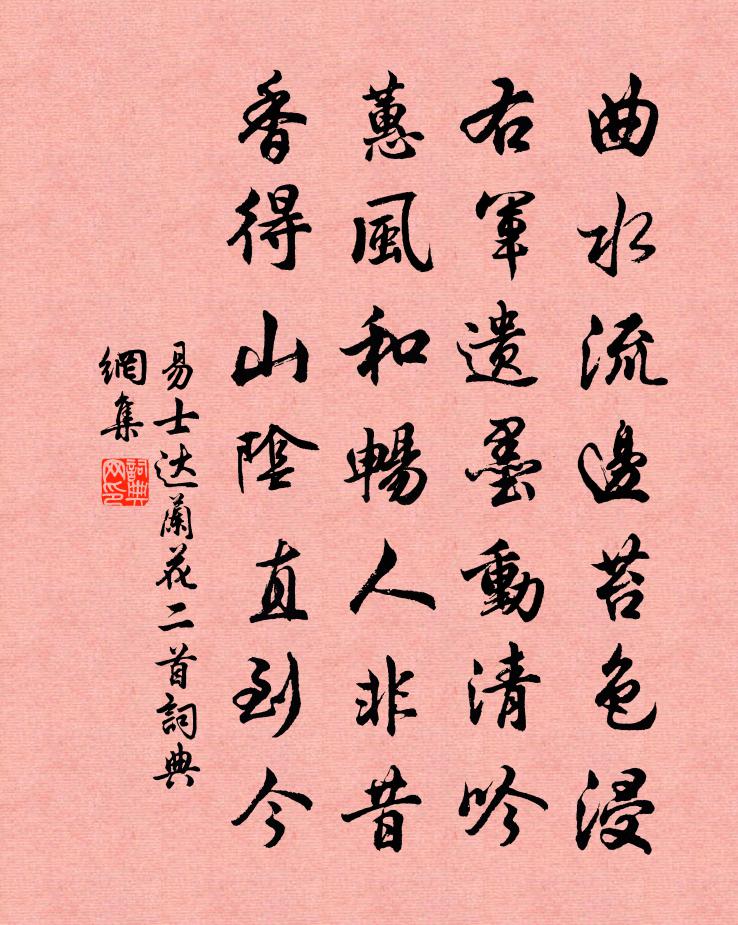 曲水流邊苔色浸
右軍遺墨動清吟
蕙風和暢人非昔
香得山陰直到今
易士达蘭花二首詞典
網集
詞典
网印